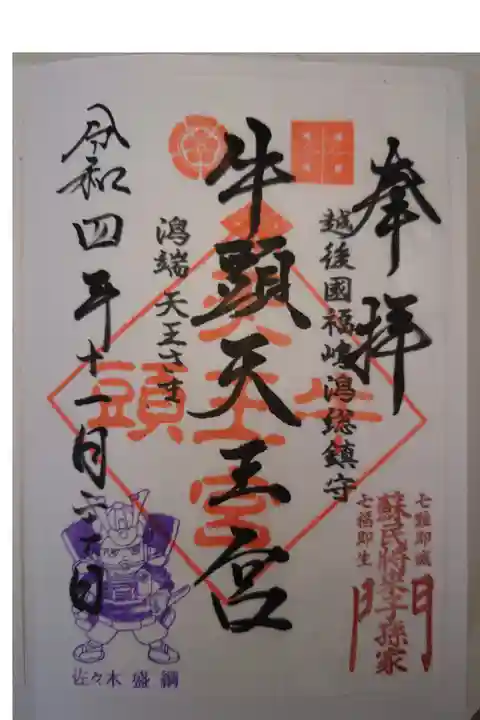 奉拝
越後國福嶋潟総鎮守
七難即滅
蘇民将来子孫家門
七福即生
牛頭天王宮
牛頭天王宮
潟端天王さま
令和四年十一月六日
佐々木盛綱